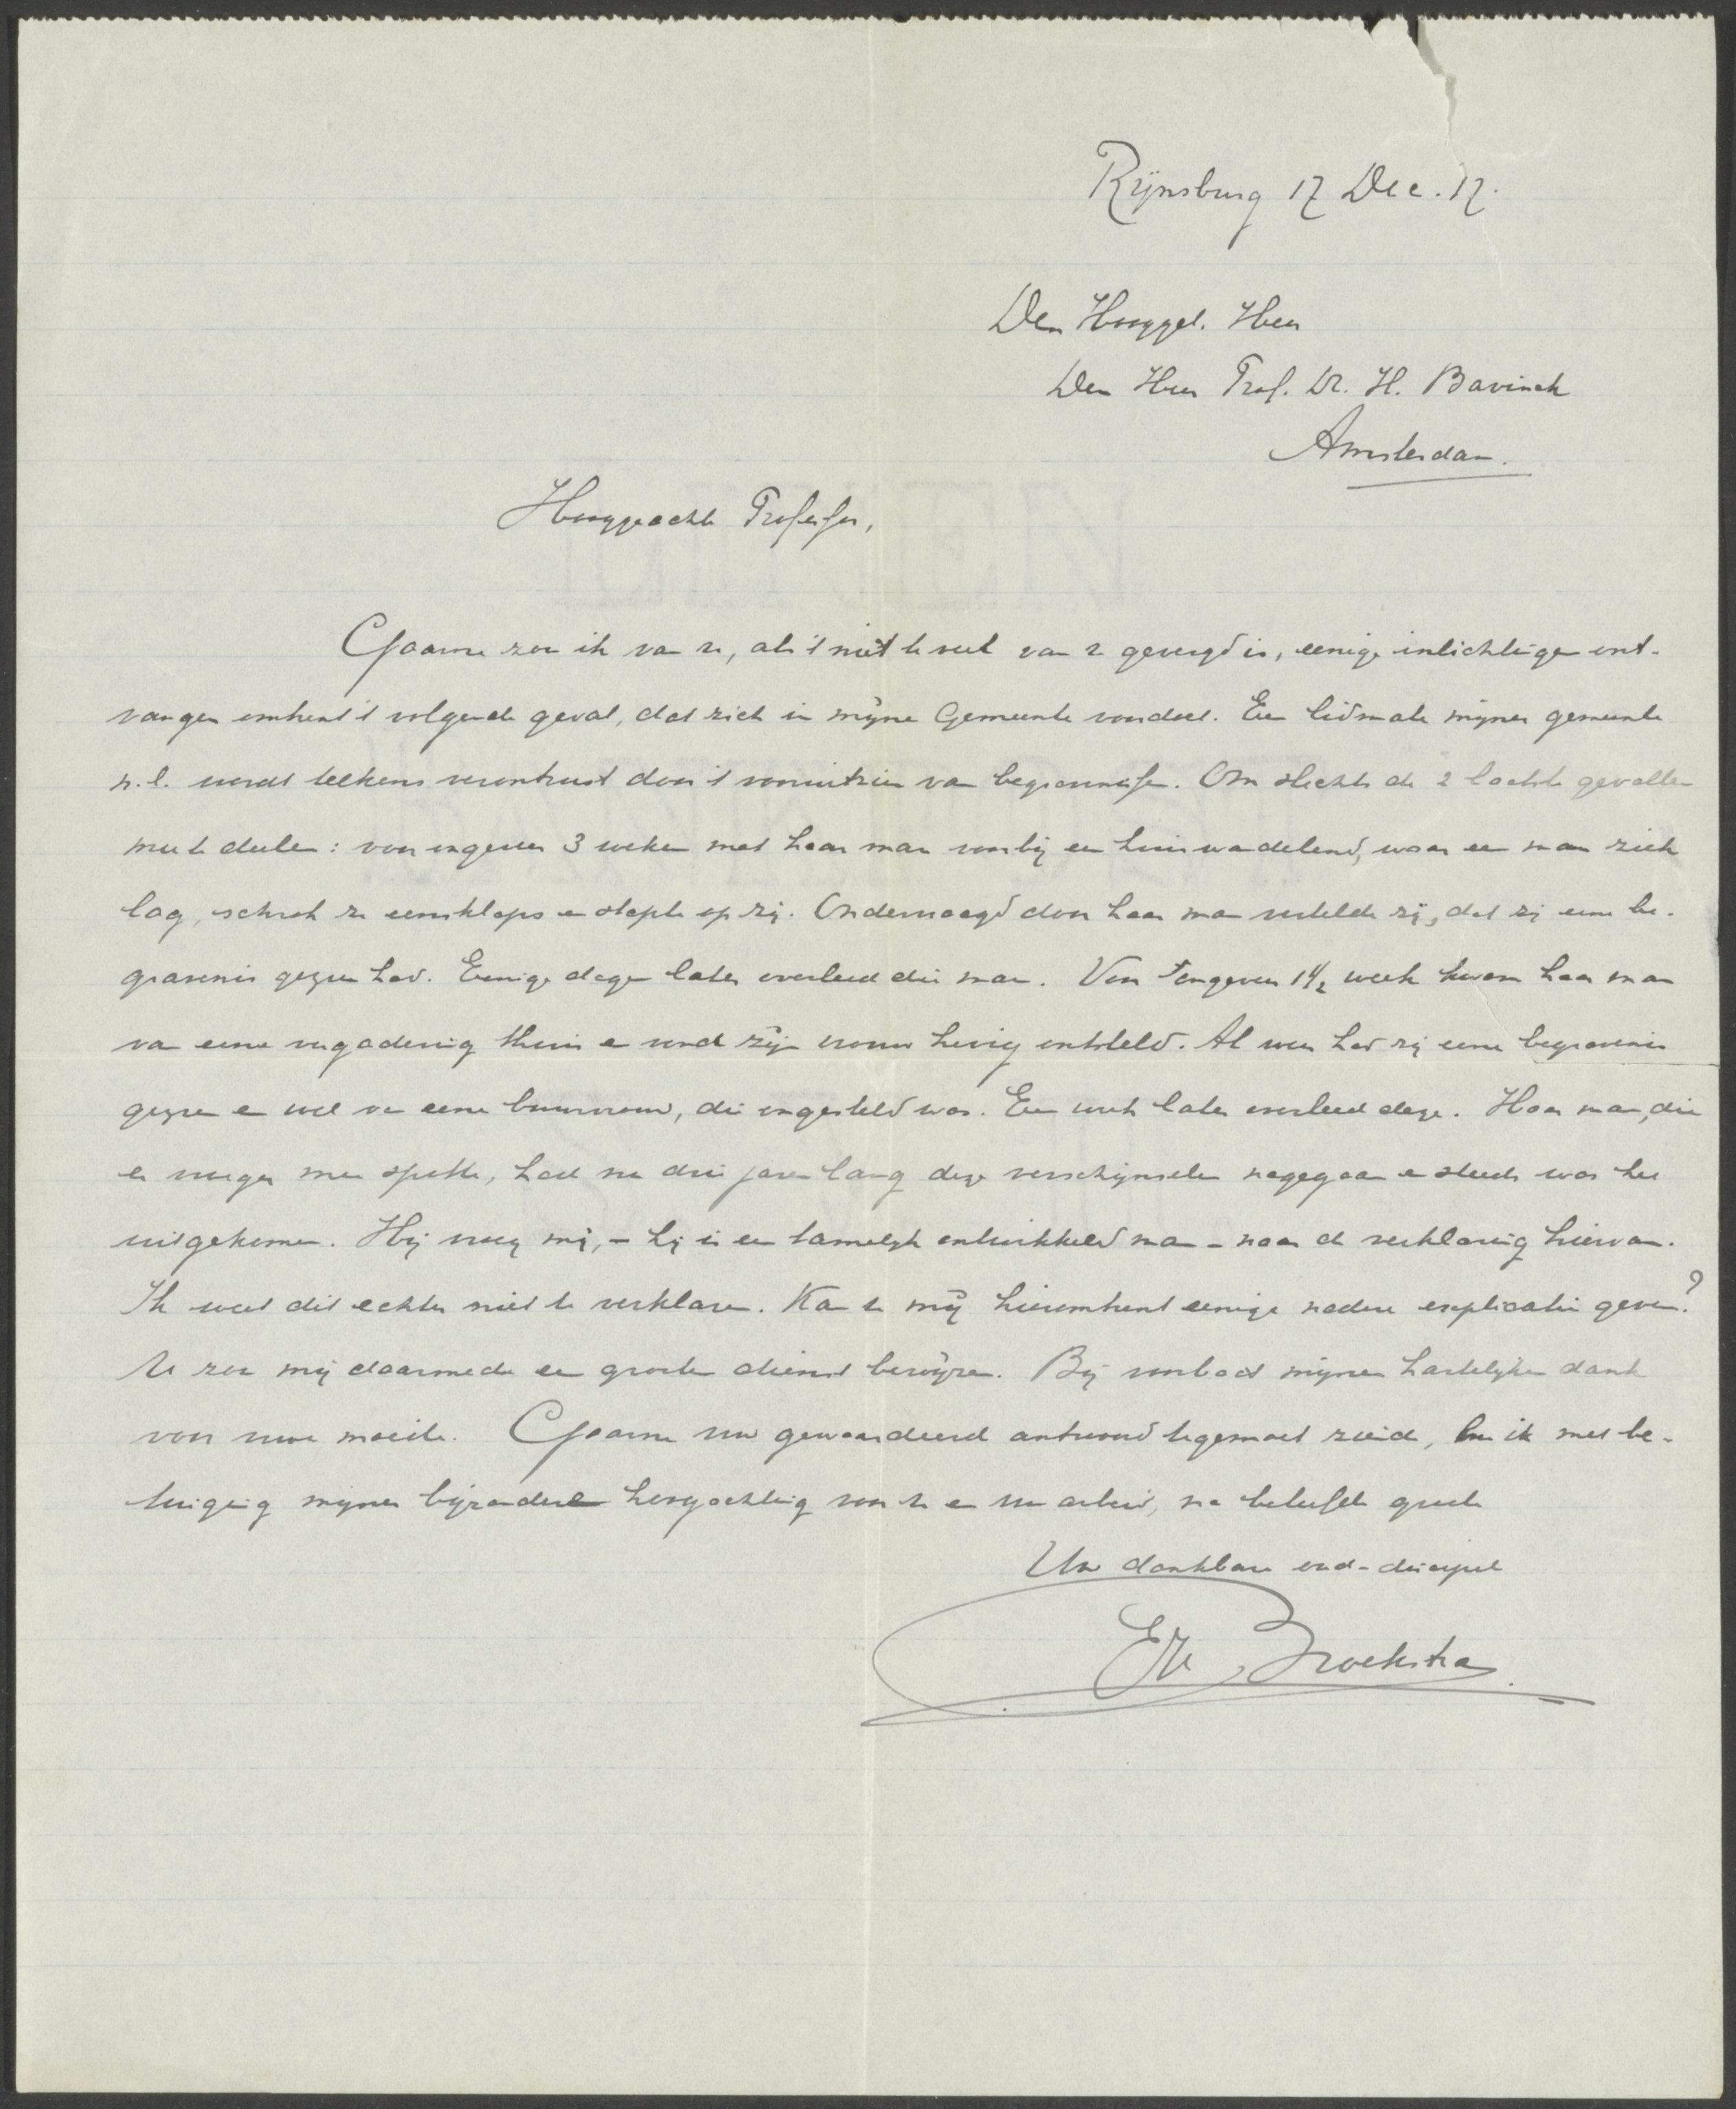 Rijnsburg 17 Dec. 17.
Den Hooggel. Heer
Den Heer Prof. Dr. H. Bavinck
Amsterdam.
Hooggeachte Professor,
Gaarne zou ik van u, als 't niet te veel van u gevergd is, eenige inlichtingen ont-
vangen omtrent 't volgende geval, dat zich in mijne Gemeente voordoet. Een lidmate mijner gemeente
n.l. wordt telkens verontrust door 't vooruitzien van begrafenissen. Om slechts de 2 laatste gevallen
mee te deelen: voor ongeveer 3 weken met haar man voorbij een huis wandelend, waar een man ziek
lag, schrok ze eensklaps en stapte op zij. Ondervraagd door haar man vertelde zij, dat zij eene be-
gravenis gezien had. Eenige dagen later overleed die man. Voor ongeveer 1 1/2 week kwam haar man
van eene vergadering thuis en vond zijn vrouw hevig ontsteld. Al weer had zij eene begravenis
gezien en wel van eene buurvrouw, die ongesteld was. Een week later overleed deze. Haar man, die
er vroeger mee spotte, had nu drie jaren lang deze verschijnselen nagegaan en steeds was het
uitgekomen. Hij vroeg mij, - hij is een tamelijk ontwikkeld man - naar de verklaring hiervan.
Ik weet dit echter niet te verklaren. Kan u mij hieromtrent eenige nadere explicatie geven?
U zou mij daarmede een grooten dienst bewijzen. Bij voorbaat mijnen hartelijken dank
voor uwe moeite. Gaarne uw gewaardeerd antwoord tegemoet ziend, ben ik met be-
tuiging mijner bijzondere hoogachting voor u en uw arbeid, na beleefde groete
Uw dankbare oud-discipel
Broekstra